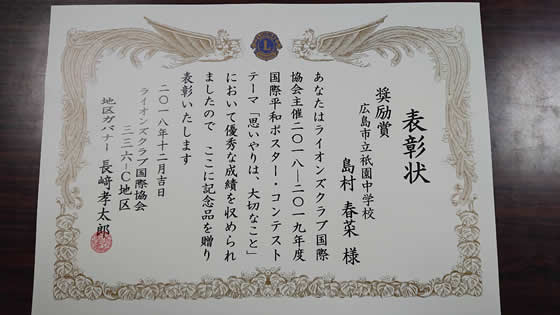 表彰状
奨励賞
広島市立祇園中学校
島村 春菜 様
あなたはライオンズクラブ国際
協会主催二〇一八―二〇一九年度
国際平和ポスター・コンテスト
テーマ「思いやりは、大切なこと」
において優秀な成績を収められ
ましたので ここに記念品を贈り
表彰いたします
二〇一八年十二月吉日
ライオンズクラブ国際協会
三三六―C地区
地区ガバナー 長﨑孝太郎